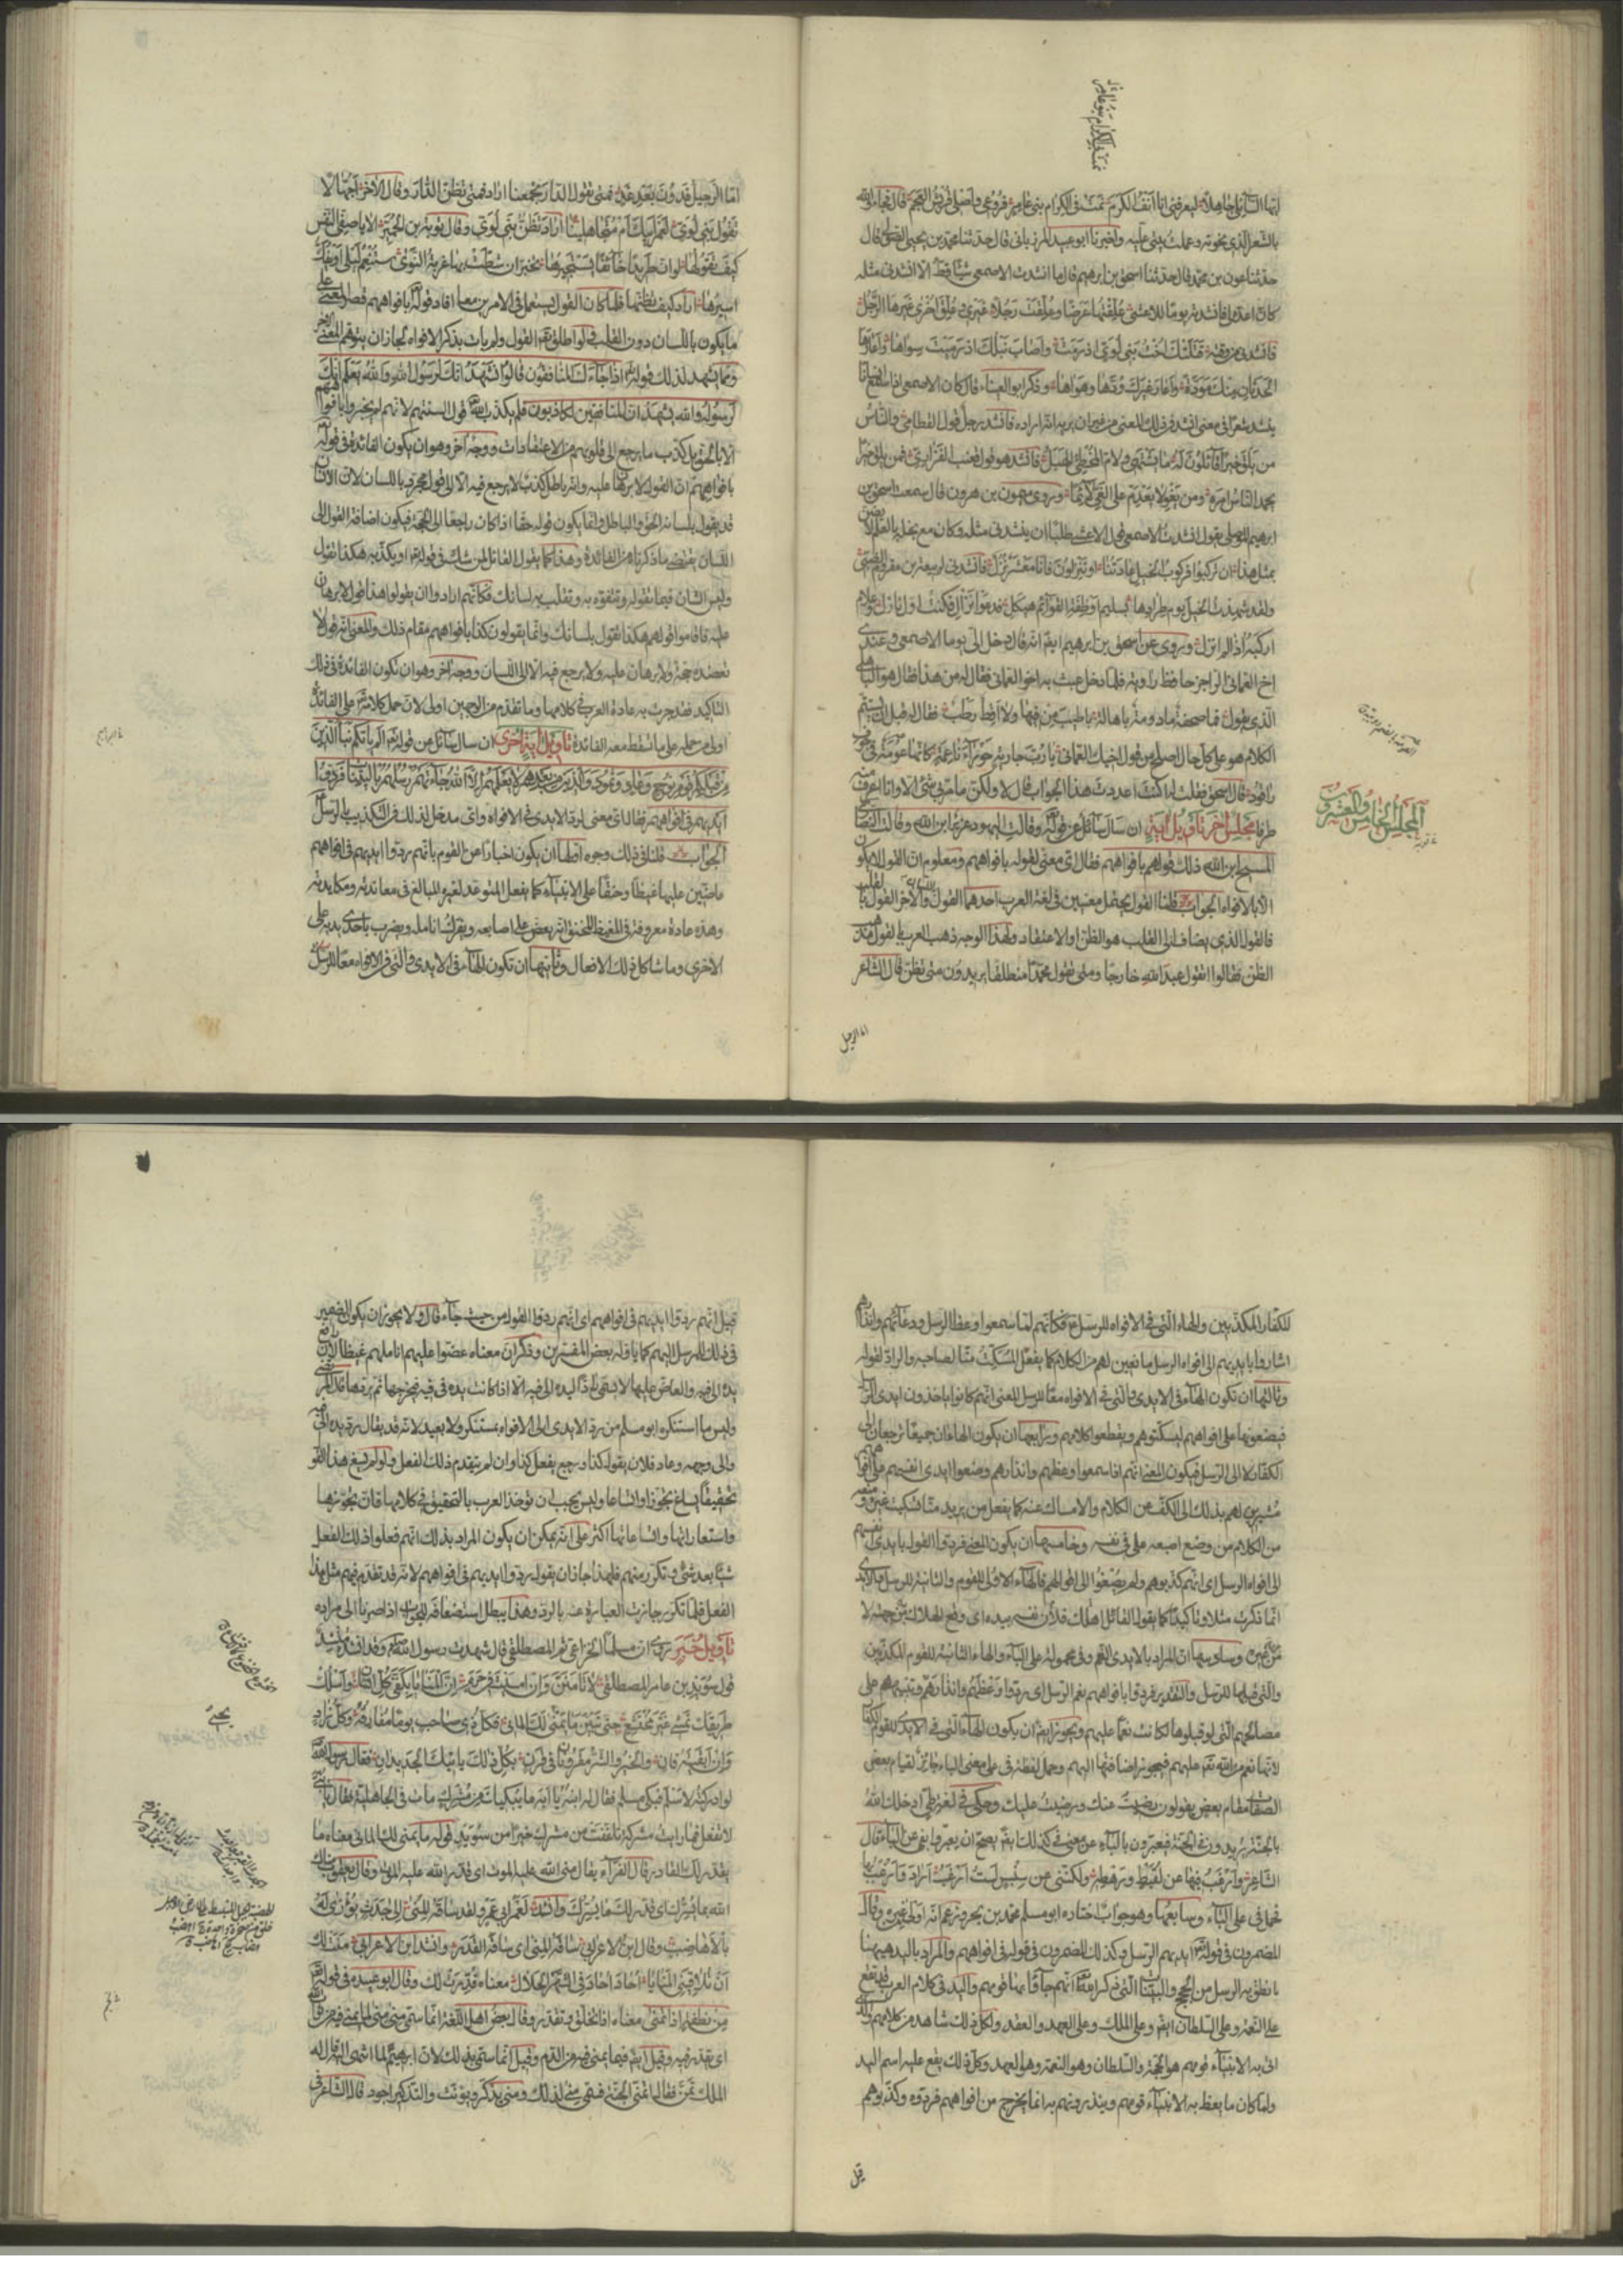 بالشعر الذي نحوته وعملت بيتي عليه وأخبرنا ابو عبيد الله المرزباني قال حدثنا محمد بن يحيى الصولي قال
حدثنا عون بن محمد قال حدثنا اسحق بن ابرهيم قال ما انشدت الاصمعي شيئا قط الا انشدني مثله
كانه اعده لي فانشدته يوما للاعشى علقتها عرضا وعلقت رجلا غيري وعلق اخرى غيرها الرجل
فانشدني من وقته قتلتك اخت بني لؤي اذ رمت واصاب نبلك اذ رميت سواها واعارها
الحدثان منك مودة واعار غيرك ودها وهواها وذكر ابو العيناء قال كان الاصمعي اذا سمع انسانا
ينشد شعرا في معنى انشد في ذلك المعنى من غير ان يريد انه اراده فانشد رجل قول القطامي والناس
من يلق خيرا قائلون له ما يشتهي ولام المخطئ الهبل فانشد هو قول قعنب الفزاري فمن يلق خيرا
يحمد الناس امره ومن يغو لا يعدم على الغي لائما وروى ميمون بن هرون قال سمعت اسحق بن
ابرهيم الموصلي يقول انشدت الاصمعي قول الاعشى طلبا ان ينشدني مثله وكان مع بخله بالعلم لا يضن
بمثل هذا ان تركبوا فركوب الخيل عادتنا او تنزلون فانا معشر نزل فانشدني لربيعة بن مقروم الضبي
ولقد شهدت الخيل يوم طرادها بسليم اوظفة القوائم هيكل فدعوا نزال فكنت اول نازل وعلام
اركبه اذا لم انزل وروي عن اسحق بن ابرهيم ايضا انه قال دخل الي يوما الاصمعي وعندي
اخ العماني الراجز حافظا راوية فلما دخل عبث به اخو العماني فقال له من هذا فقال هو الباهلي
الذي يقول فما صحفة مادومة باهالة باطيب من فيها ولا اقط رطب فقال له قبل ان يستتم
الكلام هو على كل حال اصلح من قول اخيك العماني يا رب جارية حوراء ناعمة كانها عومة في جوف
راقود قال اسحق فقلت له اكنت اعددت هذا الجواب قال لا ولكن ما مر بي شيء الا وانا اعرف منه
طرفا مجلس اخر تأويل آية ان سال سائل عن قوله تعالى وقالت اليهود عزير ابن الله وقالت النصارى
المسيح ابن الله ذلك قولهم بافواههم فقال اي معنى لقوله بافواههم ومعلوم ان القول لا يكون
الا بالافواه الجواب قلنا القول يحتمل معنيين في لغة العرب احدهما القول باللسان والآخر القول بالقلب
فالقول الذي يضاف الى القلب هو الظن او الاعتقاد ولهذا الوجه ذهب العرب بالقول مذهب
الظن فقالوا اتقول عبد الله خارجا ومتى تقول محمدا منطلقا يريدون متى تظن قال الشاعر
اما الرحيل
المجلس الخامس والعشرون
اما الرحيل فدون بعد غد فمتى تقول الدار تجمعنا اراد فمتى تظن الدار وقال الآخر اجهالا
تقول بني لؤي لعمر ابيك ام متجاهلينا اراد تظن بني لؤي وقال توبة بن الحمير الا يا صفي النفس
كيف تقولها لو ان طريدا خائفا يستجيرها تخبر ان شطت بها غربة النوى ستنعم ليلى او يفك
اسيرها اراد كيف تظنها فلما كان القول يستعمل في الامرين معا افاد قوله تعالى بافواههم قصر المعنى على
ما يكون باللسان دون القلب فلو اطلق تعالى القول ولم يات بذكر الافواه لجاز ان يتوهم المعنى الاخر
ومما يشهد لذلك قوله تعالى اذا جاءك المنافقون قالوا نشهد انك لرسول الله والله يعلم انك
لرسوله والله يشهد ان المنافقين لكاذبون فلم يكذب الله تعالى قول السنتهم لانهم لم يخبروا بافواههم
الا بالحق بل كذب ما يرجع الى قلوبهم من الاعتقادات ووجه آخر وهو ان يكون الفائدة في قوله تعالى
بافواههم ان القول لا برهان عليه وانه باطل كذب لا يرجع فيه الا الى قول مجرد باللسان لان الانسان
قد يقول بلسانه الحق والباطل وانما يكون قوله حقا اذا كان راجعا الى الحجة فيكون اضافة القول الى
اللسان يقتضي ما ذكرناه من الفائدة وهذا كما يقول القائل لمن شك في قوله او يكذبه هكذا تقول
وليس الشان فيما تقوله وتتفوه به وتقلب به لسانك فكانهم ارادوا ان يقولوا هذا قول لا برهان
عليه فاقاموا قولهم هكذا تقول بلسانك وانما يقولون كذا بافواههم مقام ذلك والمعنى انه قول لا
تعضده حجة ولا برهان عليه ولا يرجع فيه الا الى اللسان ووجه اخر وهو ان تكون الفائدة في ذلك
التاكيد فقد جرت به عادة العرب في كلامها وما تقدم من الوجهين اولى لان حمل كلامه تعالى على الفائدة
اولى من حمله على ما تسقط معه الفائدة تأويل آية اخرى ان سال سائل عن قوله تعالى الم ياتكم نبأ الذين
من قبلكم قوم نوح وعاد وثمود والذين من بعدهم لا يعلمهم الا الله جاءتهم رسلهم بالبينات فردوا
ايديهم في افواههم فقال اي معنى لرد الايدي في الافواه واي مدخل لذلك في التكذيب بالرسل
الجواب قلنا في ذلك وجوه اولها ان يكون اخبارا عن القوم بانهم ردوا ايديهم في افواههم
عاضين عليها غيظا وحنقا على الانبياء كما يفعل المتوعد لغيره المبالغ في معاندته ومكايدته
وهذه عادة معروفة في المغيظ المحنق انه يعض على اصابعه ويفرك انامله ويضرب باحدى يديه على
الاخرى وما شاكل ذلك من الافعال وثانيها ان تكون الهاء في الايدي والتي في الافواه معا للرسل
للكفار المكذبين والهاء التي في الافواه للرسل فكانهم لما سمعوا وعظ الرسل ودعائهم وانذارهم
اشاروا بايديهم الى افواه الرسل مانعين لهم من الكلام كما يفعل المسكت منا لصاحبه والراد لقوله
وثالثها ان تكون الهاء في الايدي والتي في الافواه معا للرسل المعنى انهم كانوا ياخذون ايدي الرسل
فيضعونها على افواههم ليسكتوهم ويقطعوا كلامهم ورابعها ان يكون الهاءان جميعا ترجعان الى
الكفار لا الى الرسل فيكون المعنى انهم اذا سمعوا وعظهم وانذارهم وضعوا ايدي انفسهم على افواههم
مشيرين لهم بذلك الى الكف عن الكلام والامساك عنه كما يفعل من يريد منا تسكيت غيره ومنعه
من الكلام من وضع اصبعه على في نفسه وخامسها ان يكون المعنى فردوا القول بايدي انفسهم
الى افواه الرسل اي انهم كذبوهم ولم يصغوا الى اقوالهم فالهاء الاولى للقوم والثانية للرسل والايدي
انما ذكرت مثلا وتاكيدا كما يقول القائل اهلك فلان نفسه بيده اي وقع الهلاك به من جهته لا
من غيره وسادسها ان المراد بالايدي النعم وفي محمولة على الباء والهاء الثانية للقوم المكذبين
والتي قبلها للرسل والتقدير فردوا بافواههم نعم الرسل اي ردوا وعظهم وانذارهم وتنبيههم على
مصالحهم التي لو قبلوها لكانت نعما عليهم ويجوز ايضا ان يكون الهاء التي في الايدي للقوم الكفار
لانها نعم من الله تعالى عليهم فيجوز اضافتها اليهم وحمل لفظة في على معنى الباء جائز لقيام بعض
الصفات مقام بعض يقولون رضيت عنك ورضيت عليك وحكي في لغة طي ادخلك الله
بالجنة يريدون في الجنة فيعبرون بالباء عن معنى في كذلك ايضا يصح ان يعبر بفي عن الباء قال
الشاعر وارغب فيها عن لقيط ورهطه ولكنني عن سنبس لست ارغب اراد وارغب بها
فحمل في على الباء وسابعها وهو جواب اختاره ابو مسلم محمد بن بحر وزعم انه اولى من غيره وقال
المضمرون في قوله تعالى ايديهم الرسل وكذلك المضمرون في قوله في افواههم والمراد باليد ههنا
ما نطق به الرسل من الحجج والبينات التي ذكر الله تعالى انهم جاؤا بها قومهم واليد في كلام العرب قد تقع
على النعمة وعلى السلطان ايضا وعلى الملك وعلى العهد والعقد ولكل ذلك شاهد من كلامهم والذي
اتى به الانبياء قومهم هو الحجة والسلطان وهو النعمة وهو العهد وكل ذلك يقع عليه اسم اليد
ولما كان ما يعظ به الانبياء قومهم وينذرونهم به انما يخرج من افواههم فردوه وكذبوهم
قيل
قيل انهم ردوا ايديهم في افواههم اي انهم ردوا القول من حيث جاء قال ولا يجوز ان يكون الضمير
في ذلك للمرسل اليهم كما تأوله بعض المفسرين وذكر ان معناه عضوا عليهم اناملهم غيظا لان رافع
يده الى فيه والعاض عليها لا يسمى رادا ليده الى فيه الا اذا كانت يده في فيه فيخرجها ثم يردها قال المرتضى
وليس ما استنكره ابو مسلم من رد الايدي الى الافواه بمستنكر ولا بعيد لانه قد يقال رد يده الى فيه
والى وجهه وعاد فلان يقول كذا ورجع يفعل كذا وان لم يتقدم ذلك الفعل ولو لم يسغ هذا القول
تحقيقا لساغ تجوزا واتساعا وليس يجب ان تؤخذ العرب بالتحقيق في كلامها فان تجوزها
واستعاراتها واتساعاتها اكثر على انه يمكن ان يكون المراد بذلك انهم فعلوا ذلك الفعل
شيئا بعد شيء وتكرر منهم فلهذا جاز ان يقول ردوا ايديهم في افواههم لانه قد تقدم منهم مثل هذا
الفعل فلما تكرر جازت العبارة عنه بالرد وهذا يبطل استضعافه للجواب اذا صرنا الى مراده
تأويل خبر روي ان مسلما الخزاعي ثم المصطلقي قال شهدت رسول الله وقد انشده منشد
قول سويد بن عامر المصطلقي لا تأمنن وان امسيت في حرم ان المنايا بكفي كل انسان واسلك
طريقك تمشي غير مختشع حتى تبين ما يمني لك الماني فكل ذي صاحب يوما مفارقه وكل زاد
وان ابقيته فاني والخير والشر مقرونان في قرن بكل ذلك ياتيك الجديدان فقال رسول الله
لو ادركته لاسلم فبكى مسلم فقال له ابنه يا ابه ما يبكيك من مشرك مات في الجاهلية فقال يا بني
لا تفعل فما رايت مشركة تلقفت من مشرك خيرا من سويد قوله ما يمني لك الماني معناه ما
يقدر لك القادر قال الفراء يقال منى الله عليه الموت اي قدر الله عليه الموت وقال يعقوب مناك
الله بما يسرك اي قدر لك ما يسرك وانشد لعمر ابي عمرو لقد ساقه المنى الى جدث يوزى له
بالاهاضب وقال ابن الاعرابي ساقه المنى اي ساقه القدر وانشد ابن الاعرابي منت لك
ان تلاقيني المنايا احاد احاد في الشهر الحلال معناه قدرت لك وقال ابو عبيدة في قوله تعالى
من نطفة اذا تمنى معناه اذا تخلق وتقدر وقال بعض اهل اللغة انما سمي منى منى لما يمنى فيه من
اي يقدر فيه وقيل ايضا فيما يمنى فيه من الدم وقيل انما سمي بذلك لان ابرهيم لما انتهى اليه قال له
الملك تمن فقال اتمنى الجنة فسمي منى لذلك ومنى يذكر ويؤنث والتذكير اجود قال الشاعر في